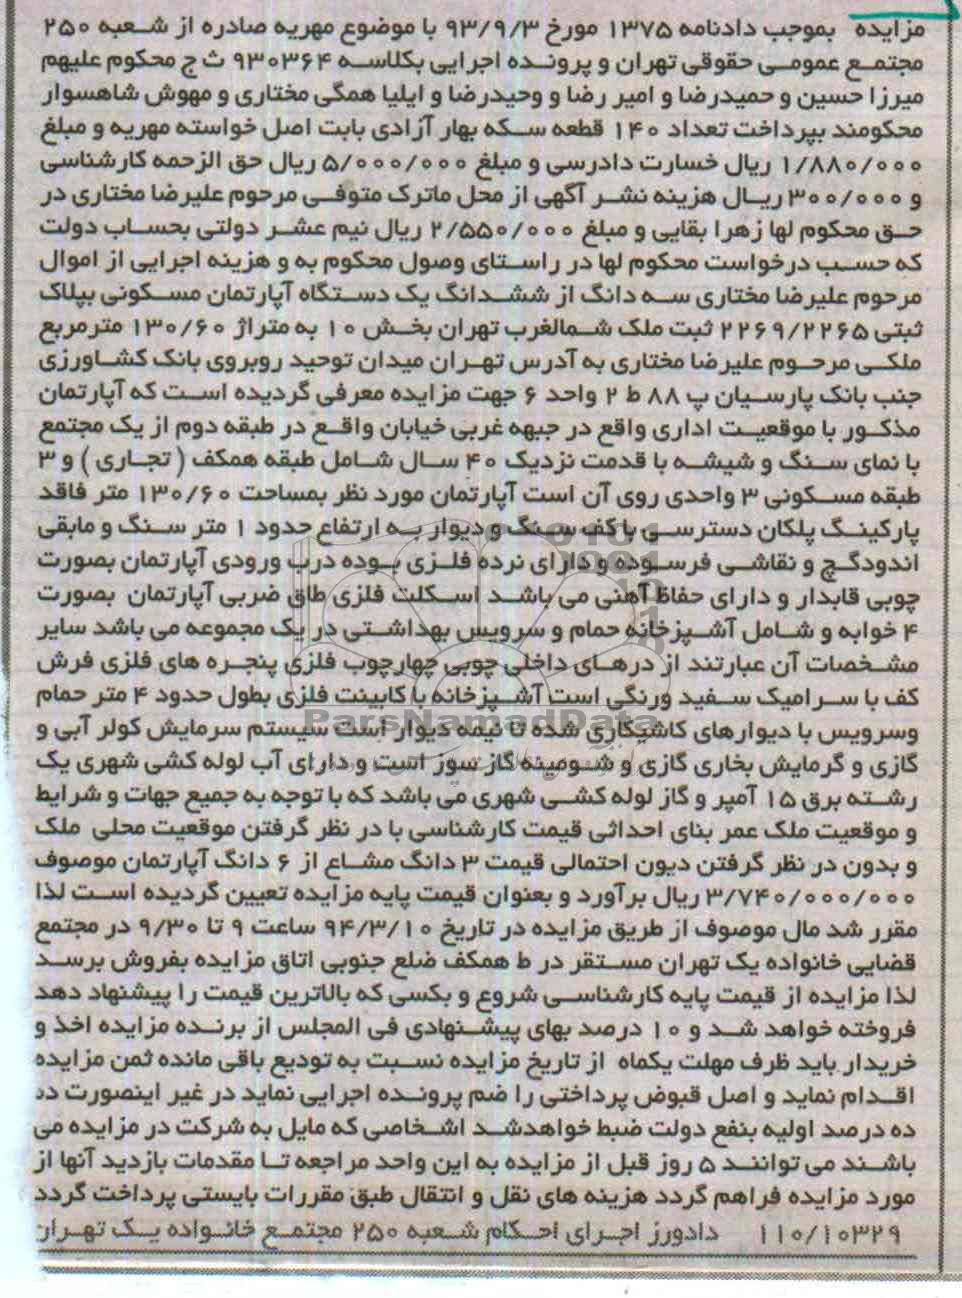 مزایده بموجب دادنامه ۱۳۷۵ مورخ ۹۳/۹/۳ با موضوع مهریه صادره از شعبه ۲۵۰
مجتمع عمومی حقوقی تهران و پرونده اجرایی بکلاسه ۹۳۰۳۶۴ ث ج محکوم علیهم
میرزا حسین و حمیدرضا و امیر رضا و وحیدرضا و ایلیا همگی مختاری و مهوش شاهسوار
محکومند بپرداخت تعداد ۱۴۰ قطعه سکه بهار آزادی بابت اصل خواسته مهریه و مبلغ
۱/۸۸۰/۰۰۰ ریال خسارت دادرسی و مبلغ ۵/۰۰۰/۰۰۰ ریال حق الزحمه کارشناسی
و ۳۰۰/۰۰۰ ریال هزینه نشر آگهی از محل ماترک متوفی مرحوم علیرضا مختاری در
حق محکوم لها زهرا بقایی و مبلغ ۲/۵۵۰/۰۰۰ ریال نیم عشر دولتی بحساب دولت
که حسب درخواست محکوم لها در راستای وصول محکوم به و هزینه اجرایی از اموال
مرحوم علیرضا مختاری سه دانگ از ششدانگ یک دستگاه آپارتمان مسکونی بپلاک
ثبتی ۲۲۶۹/۲۲۶۵ ثبت ملک شمالغرب تهران بخش ۱۰ به متراژ ۱۳۰/۶۰ مترمربع
ملکی مرحوم علیرضا مختاری به آدرس تهران میدان توحید روبروی بانک کشاورزی
جنب بانک پارسیان پ ۸۸ ط ۲ واحد ۶ جهت مزایده معرفی گردیده است که آپارتمان
مذکور با موقعیت اداری واقع در جبهه غربی خیابان واقع در طبقه دوم از یک مجتمع
با نمای سنگ و شیشه با قدمت نزدیک ۴۰ سال شامل طبقه همکف (تجاری) و ۳
طبقه مسکونی ۳ واحدی روی آن است آپارتمان مورد نظر بمساحت ۱۳۰/۶۰ متر فاقد
پارکینگ پلکان دسترسی با کف سنگ و دیوار به ارتفاع حدود ۱ متر سنگ و مابقی
اندودگچ و نقاشی فرسوده و دارای نرده فلزی بوده درب ورودی آپارتمان بصورت
چوبی قابدار و دارای حفاظ آهنی می باشد اسکلت فلزی طاق ضربی آپارتمان بصورت
۴ خوابه و شامل آشپزخانه حمام و سرویس بهداشتی در یک مجموعه می باشد سایر
مشخصات آن عبارتند از درهای داخلی چوبی چهارچوب فلزی پنجره های فلزی فرش
کف با سرامیک سفید ورنگی است آشپزخانه با کابینت فلزی بطول حدود ۴ متر حمام
وسرویس با دیوارهای کاشیکاری شده تا نیمه دیوار است سیستم سرمایش کولر آبی و
گازی و گرمایش بخاری گازی و شومینه گاز سوز است و دارای آب لوله کشی شهری یک
رشته برق ۱۵ آمپر و گاز لوله کشی شهری می باشد که با توجه به جمیع جهات و شرایط
و موقعیت ملک عمر بنای احداثی قیمت کارشناسی با در نظر گرفتن موقعیت محلی ملک
و بدون در نظر گرفتن دیون احتمالی قیمت ۳ دانگ مشاع از ۶ دانگ آپارتمان موصوف
۳/۷۴۰/۰۰۰/۰۰۰ ریال برآورد و بعنوان قیمت پایه مزایده تعیین گردیده است لذا
مقرر شد مال موصوف از طریق مزایده در تاریخ ۹۴/۳/۱۰ ساعت ۹ تا ۹/۳۰ در مجتمع
قضایی خانواده یک تهران مستقر در ط همکف ضلع جنوبی اتاق مزایده بفروش برسد
لذا مزایده از قیمت پایه کارشناسی شروع و بکسی که بالاترین قیمت را پیشنهاد دهد
فروخته خواهد شد و ۱۰ درصد بهای پیشنهادی فی المجلس از برنده مزایده اخذ و
خریدار باید ظرف مهلت یکماه از تاریخ مزایده نسبت به تودیع باقی مانده ثمن مزایده
اقدام نماید و اصل قبوض پرداختی را ضم پرونده اجرایی نماید در غیر اینصورت
ده درصد اولیه بنفع دولت ضبط خواهدشد اشخاصی که مایل به شرکت در مزایده می
باشند می توانند ۵ روز قبل از مزایده به این واحد مراجعه تا مقدمات بازدید آنها از
مورد مزایده فراهم گردد هزینه های نقل و انتقال طبق مقررات بایستی پرداخت گردد
۱۱۰/۱۰۳۲۹ دادورز اجرای احکام شعبه ۲۵۰ مجتمع خانواده یک تهران
ParsNamadData